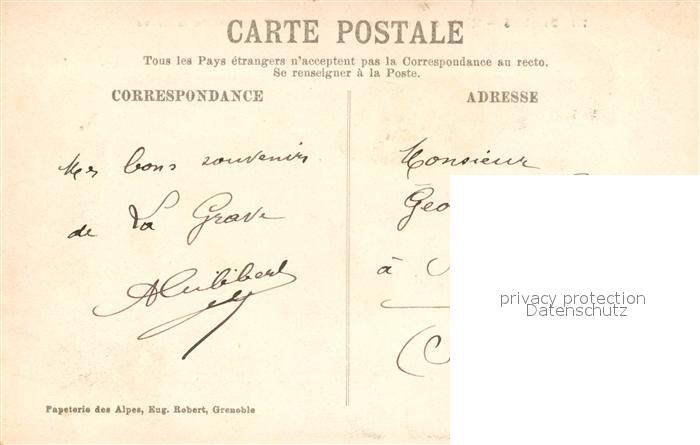 CARTE POSTALE
Tous les Pays étrangers n'acceptent pas la Correspondance au recto.
Se renseigner à la Poste.
CORRESPONDANCE
ADRESSE
Mes bons souvenirs
de La Grave
Monsieur
Geo
à
(
privacy protection
Datenschutz
Papeterie des Alpes, Eug. Robert, Grenoble